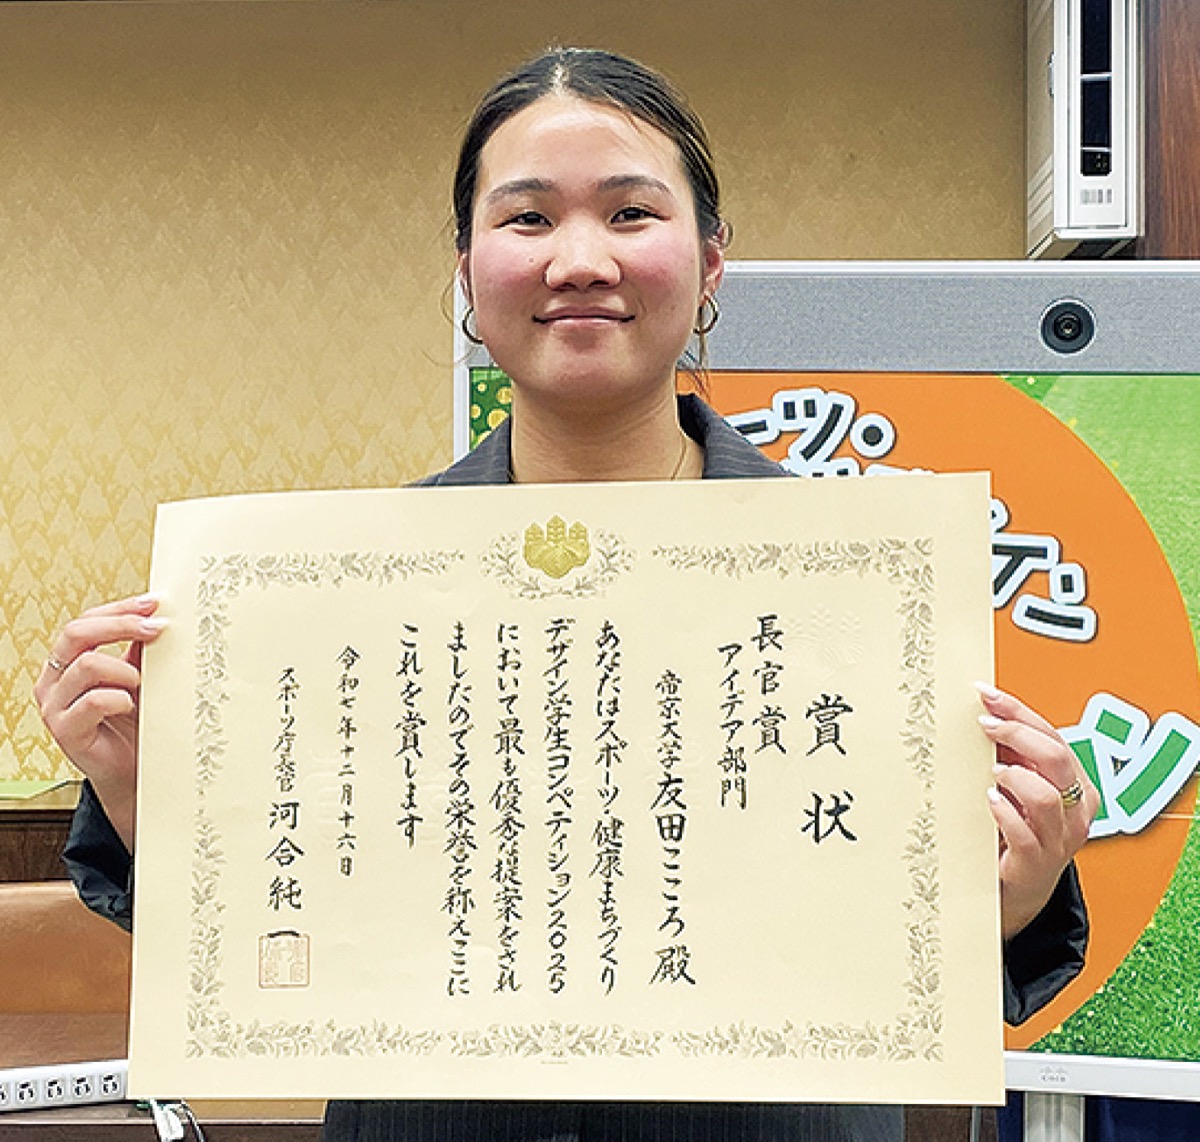 賞状
長官賞
アイデア部門
帝京大学 友田こころ 殿
あなたはスポーツ・健康まちづくり
デザイン学生コンペティション2025
において最も優秀な提案をされ
ましたのでその栄誉を称えここに
これを賞します
令和七年十二月十六日
スポーツ庁長官 河合純一
ーツ・
ン
CISCO